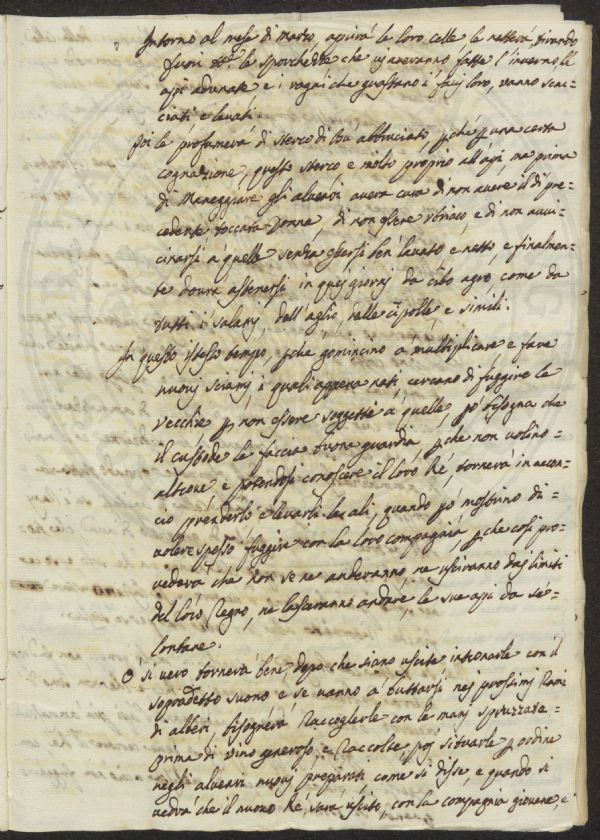 Intorno al mese di Marzo, aprirà le loro celle le netterà, tirando
fuori tt.e le sporchezze che vi averanno fatte l'inverno, le
api adunate e i ragni che guastano i favj loro, vanno scac-
ciati e levati.
Poi le profumerà di sterco di bue abbruciato, pché p una certa
cognazione, questo sterco è molto proprio all'api, ma prima
di maneggiare gli alveari averà cura di non avere il dì pre-
cedente toccata Donna, di non essere ubriaco, e di non avvi-
cinarsi a quelle senza essersi ben lavato e netto, e finalmen-
te dovrà astenersi in quei giorni da cibo agro, come da
tutti i salami, dall'aglio, dalle cipolle e simili.
In questo istesso tempo, pche comincino a multiplicare e fare
nuovj sciami, i quali appena nati, cercano di fuggire le
vecchie p non essere soggette a quelle, pò bisogna che
il custode le faccia buona guardia, pche non volino
altrove e potendosi conoscere il loro Re, tornerà in accon-
cio prenderlo e levarli le ali, quando pò mostrino di
volere spesso fuggire con la loro compagnia, pche così pro-
vederà che non se ne anderanno, ne usciranno dagl limiti
del loro Regno, ne lasceranno andare, le sue api da se
lontane.
O si vero tornerà bene, dopo che siano uscite intronarle con il
sopradetto suono e se vanno a buttarsi nej prossimj rami
di alberi, bisognerà raccoglerle con le manj spruzzate
prima di vino generoso e raccolte, poi situarle p ordine
negli alvearj nuovj preparati come si disse, e quando si
vedrà che il nuovo Re, sarà uscito, con la compagnia giovane, e